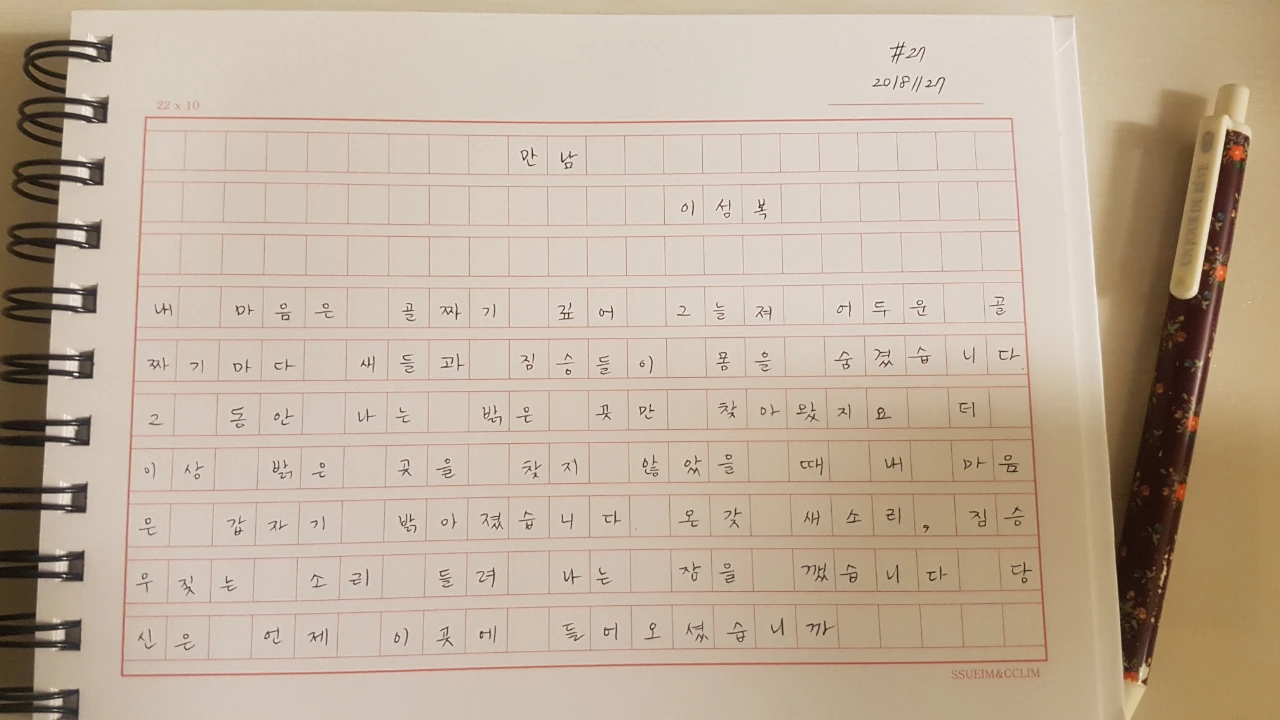 #27
20181127
22 x 10
만남
이성복
내 마음은 골짜기 깊어 그늘져 어두운 골
짜기마다 새들과 짐승들이 몸을 숨겼습니다.
그 동안 나는 밝은 곳만 찾아왔지요 더
이상 밝은 곳을 찾지 않았을 때 내 마음
은 갑자기 밝아졌습니다. 온갖 새소리, 짐승
우짖는 소리 들려 나는 잠을 깼습니다 당
신은 언제 이곳에 들어오셨습니까
SSUEIM&CCLIM